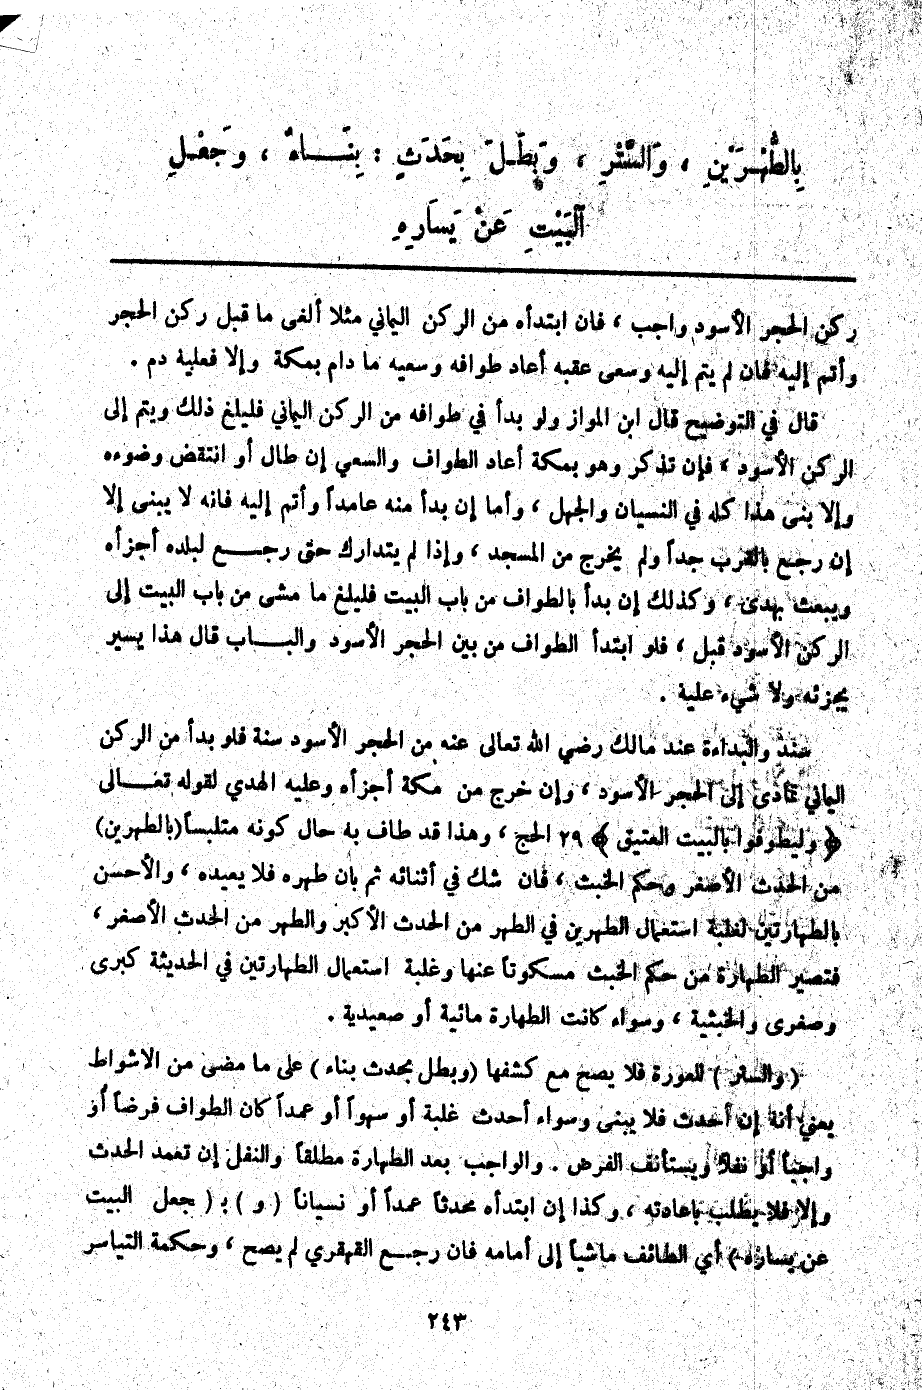 بِالطُّهْرَيْنِ ، وَالسَّتْرِ ، وَبَطَلَ بِحَدَثٍ : بِنَاءٌ ، وَجَعْلِ
ٱلْبَيْتِ عَنْ يَسَارِهِ
ركن الحجر الأسود واجب ، فان ابتدأه من الركن اليماني مثلا ألغى ما قبل ركن الحجر
وأتم إليه فان لم يتم إليه وسعى عقبه أعاد طوافه وسعيه ما دام بمكة وإلا فعليه دم .
قال في التوضيح قال ابن المواز ولو بدأ في طوافه من الركن اليماني فليلغ ذلك ويتم إلى
الركن الأسود ، فإن تذكر وهو بمكة أعاد الطواف والسعي إن طال أو انتقض وضوءه
وإلا بنى هذا كله في النسيان والجهل ، وأما إن بدأ منه عامداً وأتم إليه فانه لا يبنى إلا
إن رجع بالقرب جداً ولم يخرج من المسجد ، وإذا لم يتدارك حتى رجع لبلده أجزأه
ويبعث بهدى ، وكذلك إن بدأ بالطواف من باب البيت فليلغ ما مشى من باب البيت إلى
الركن الأسود قبل ، فلو ابتدأ الطواف من بين الحجر الأسود والباب قال هذا يسير
يجزئه ولا شيء علية .
عند والبداءة عند مالك رضي الله تعالى عنه من الحجر الأسود سنة فلو بدأ من الركن
اليماني تمادى إلى الحجر الأسود ، وإن خرج من مكة أجزأه وعليه الهدي لقوله تعالى
﴿ وليطوفوا بالبيت العتيق ﴾ ٢٩ الحج ، وهذا قد طاف به حال كونه متلبساً (بالطهرين)
من الحدث الأصغر وحكم الخبث ، فان شك في أثنائه ثم بان طهره فلا يعيده ، والأحسن
بالطهارتين لغلبة استعمال الطهرين في الطهر من الحدث الأكبر والطهر من الحدث الأصغر ،
فتصير الطهارة من حكم الخبث مسكوتاً عنها وغلبة استعمال الطهارتين في الحديثة كبرى
وصغرى والخبثية ، وسواء كانت الطهارة مائية أو صعيدية .
( والستر ) للعورة فلا يصح مع كشفها (وبطل بحدث بناء ) على ما مضى من الاشواط
يعني أنة إن أحدث فلا يبنى وسواء أحدث غلبة أو سهواً أو عمداً كان الطواف فرضاً أو
واجباً أو نفلا ويستأنف الفرض . والواجب بعد الطهارة مطلقاً والنفل إن تعمد الحدث
وإلا فلا يطلب باعادته ، وكذا إن ابتدأه محدثاً عمداً أو نسياناً ( و ) بـ ( جعل البيت
عن يساره ) أي الطائف ماشياً إلى أمامه فان رجع القهقري لم يصح ، وحكمة التياسر
٢٤٣